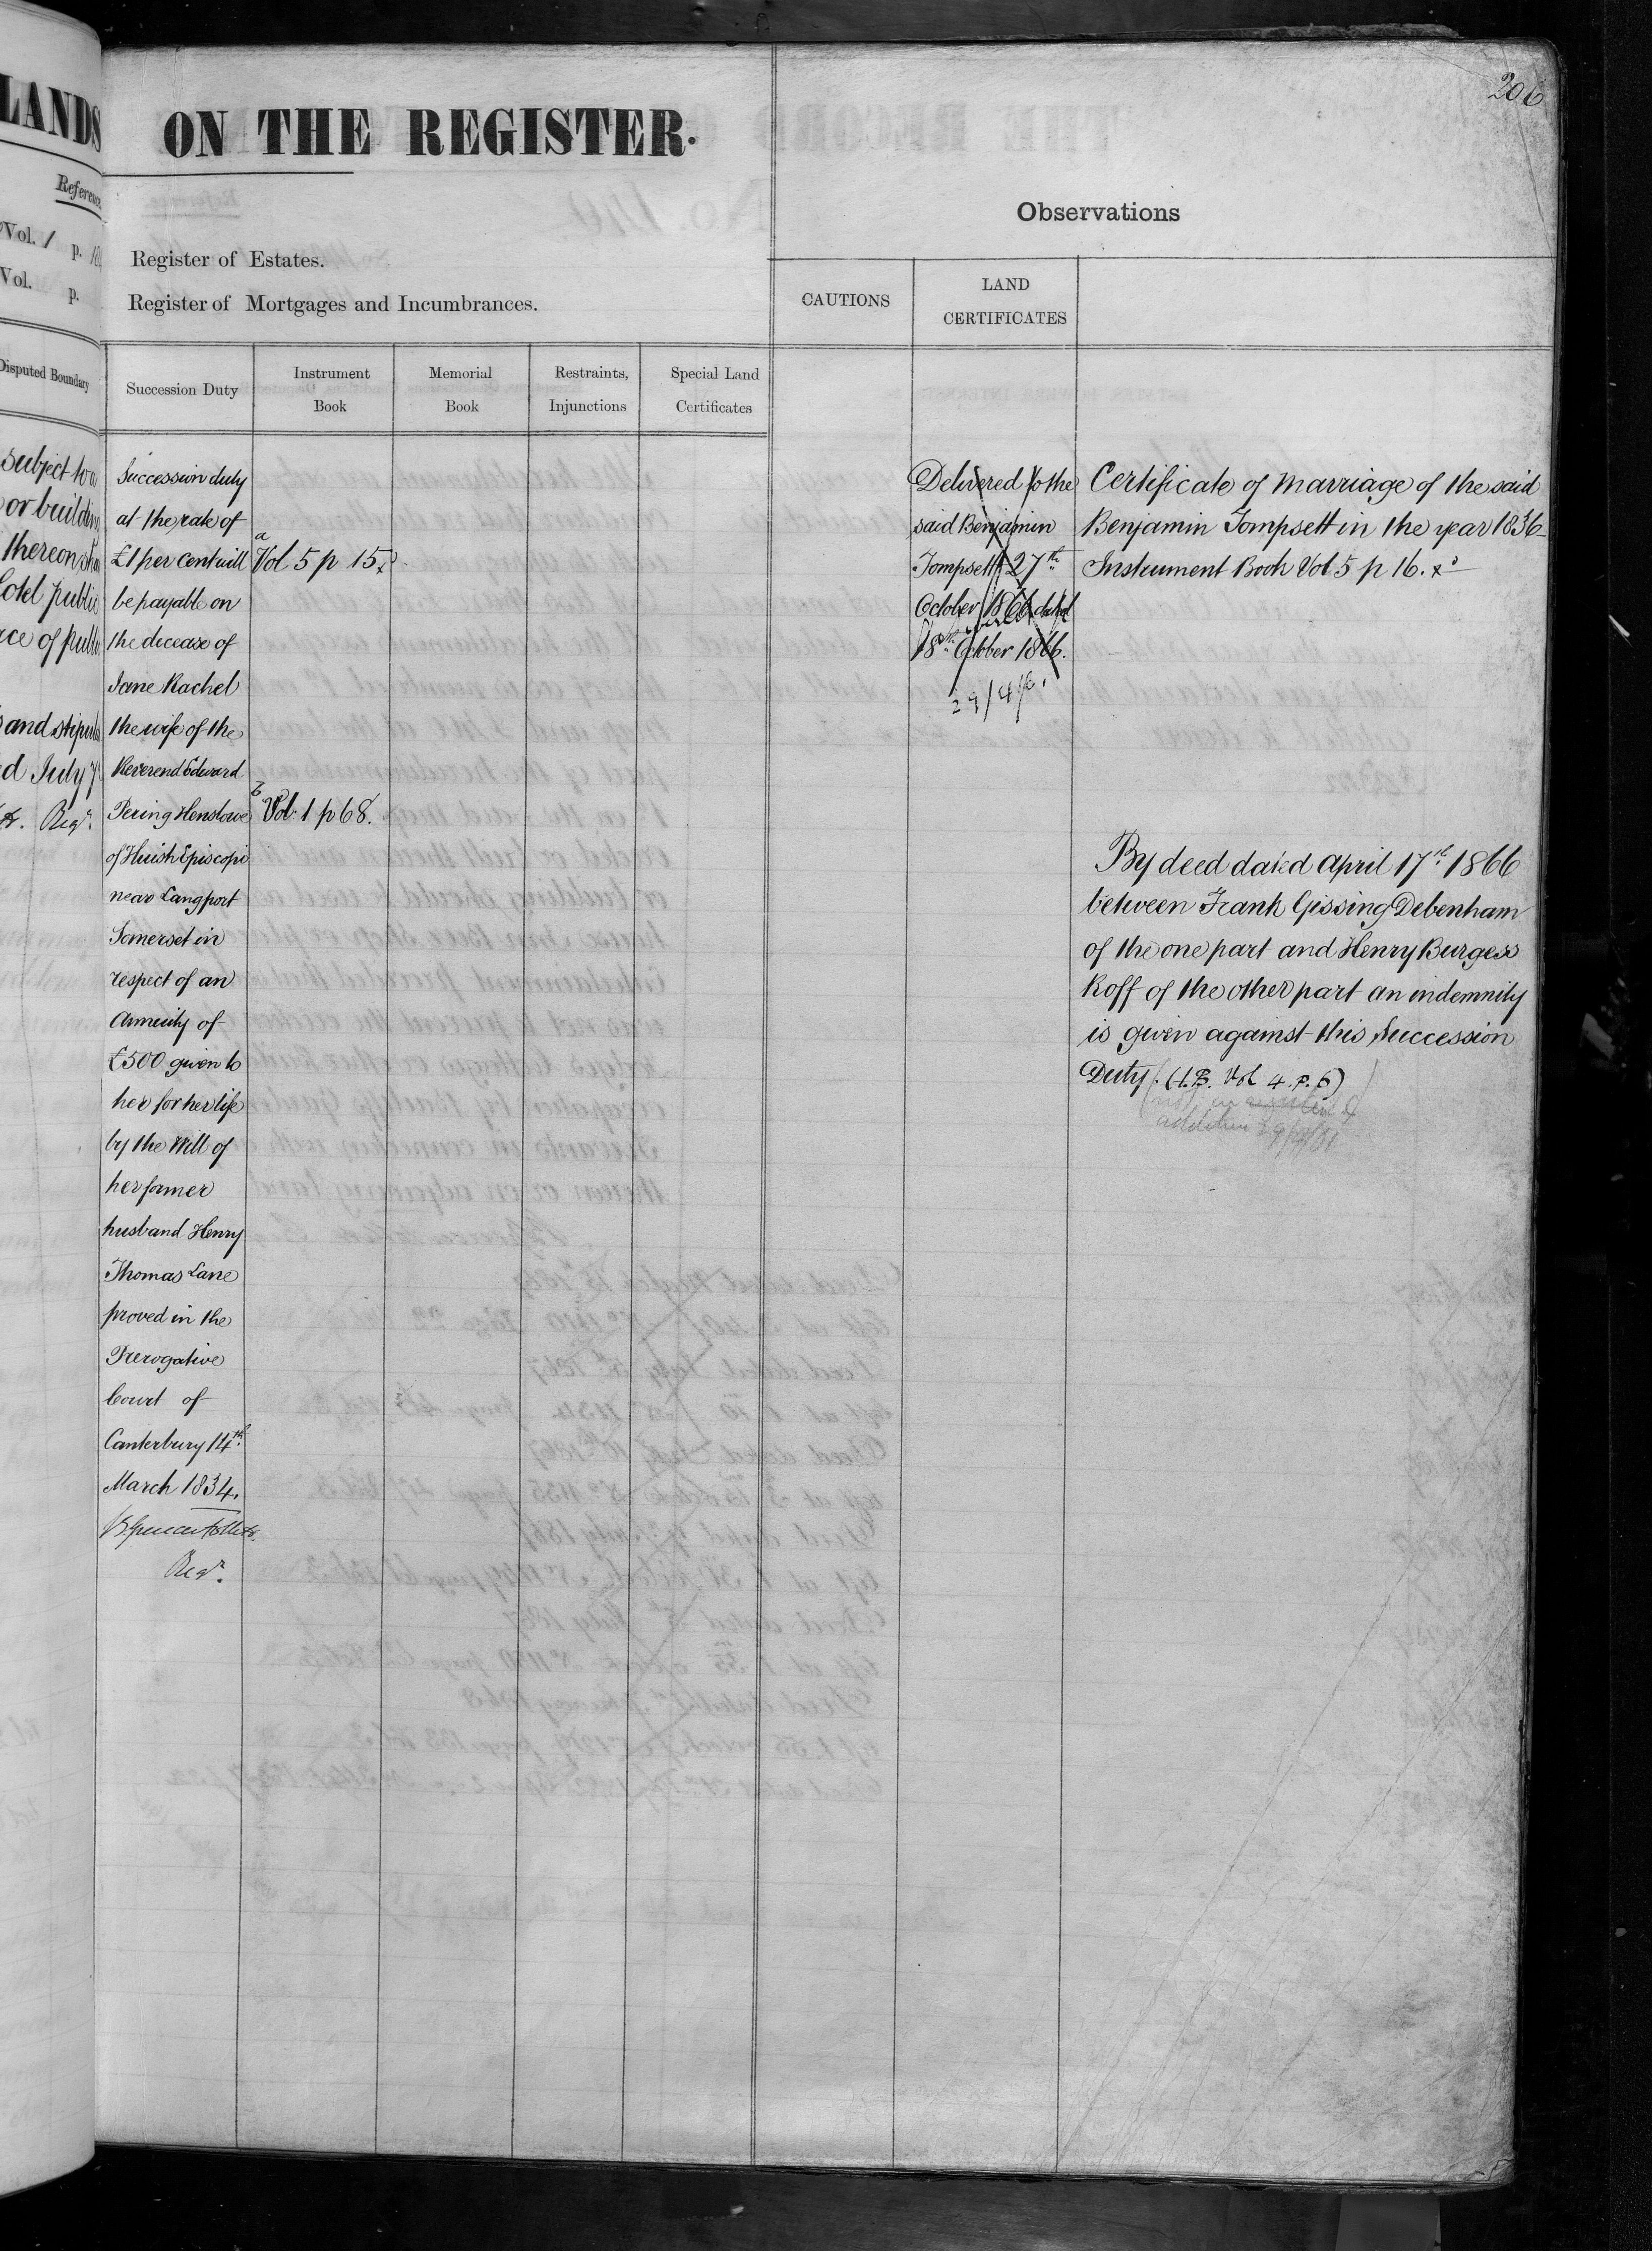 206
LANDS
ON THE REGISTER.
Reference
Vol. 1 p.
Vol. p.
Register of Estates.
Register of Mortgages and Incumbrances.
Observations
CAUTIONS
LAND
CERTIFICATES
Disputed Boundary
Succession Duty
Instrument
Book
Memorial
Book
Restraints,
Injunctions
Special Land
Certificates
subject to
or building
thereon
public
of public
and stipul
d July
Regr.
Succession duty
at the rate of
£1 per cent will
be payable on
the decease of
Jane Rachel
the wife of the
Reverend Edward
Pering Henslowe
of Huish Episcopi
near Langport
Somerset in
respect of an
Annuity of
£500 given to
her for her life
by the Will of
her former
husband Henry
Thomas Lane
proved in the
Prerogative
Court of
Canterbury 14th
March 1834.
Regr.
a
Vol 5 p 15
b
Vol. 1 p 68.
Delivered to the
said Benjamin
Tompsett 27th
October 1866 dated
18th October 1866.
29/4/
Certificate of Marriage of the said
Benjamin Tompsett in the year 1836
Instrument Book Vol 5 p 16.
By deed dated April 17th 1866
between Frank Gissing Debenham
of the one part and Henry Burgess
Roff of the other part an indemnity
is given against this Succession
Duty. (I.B. Vol 4. P. 6)
addition